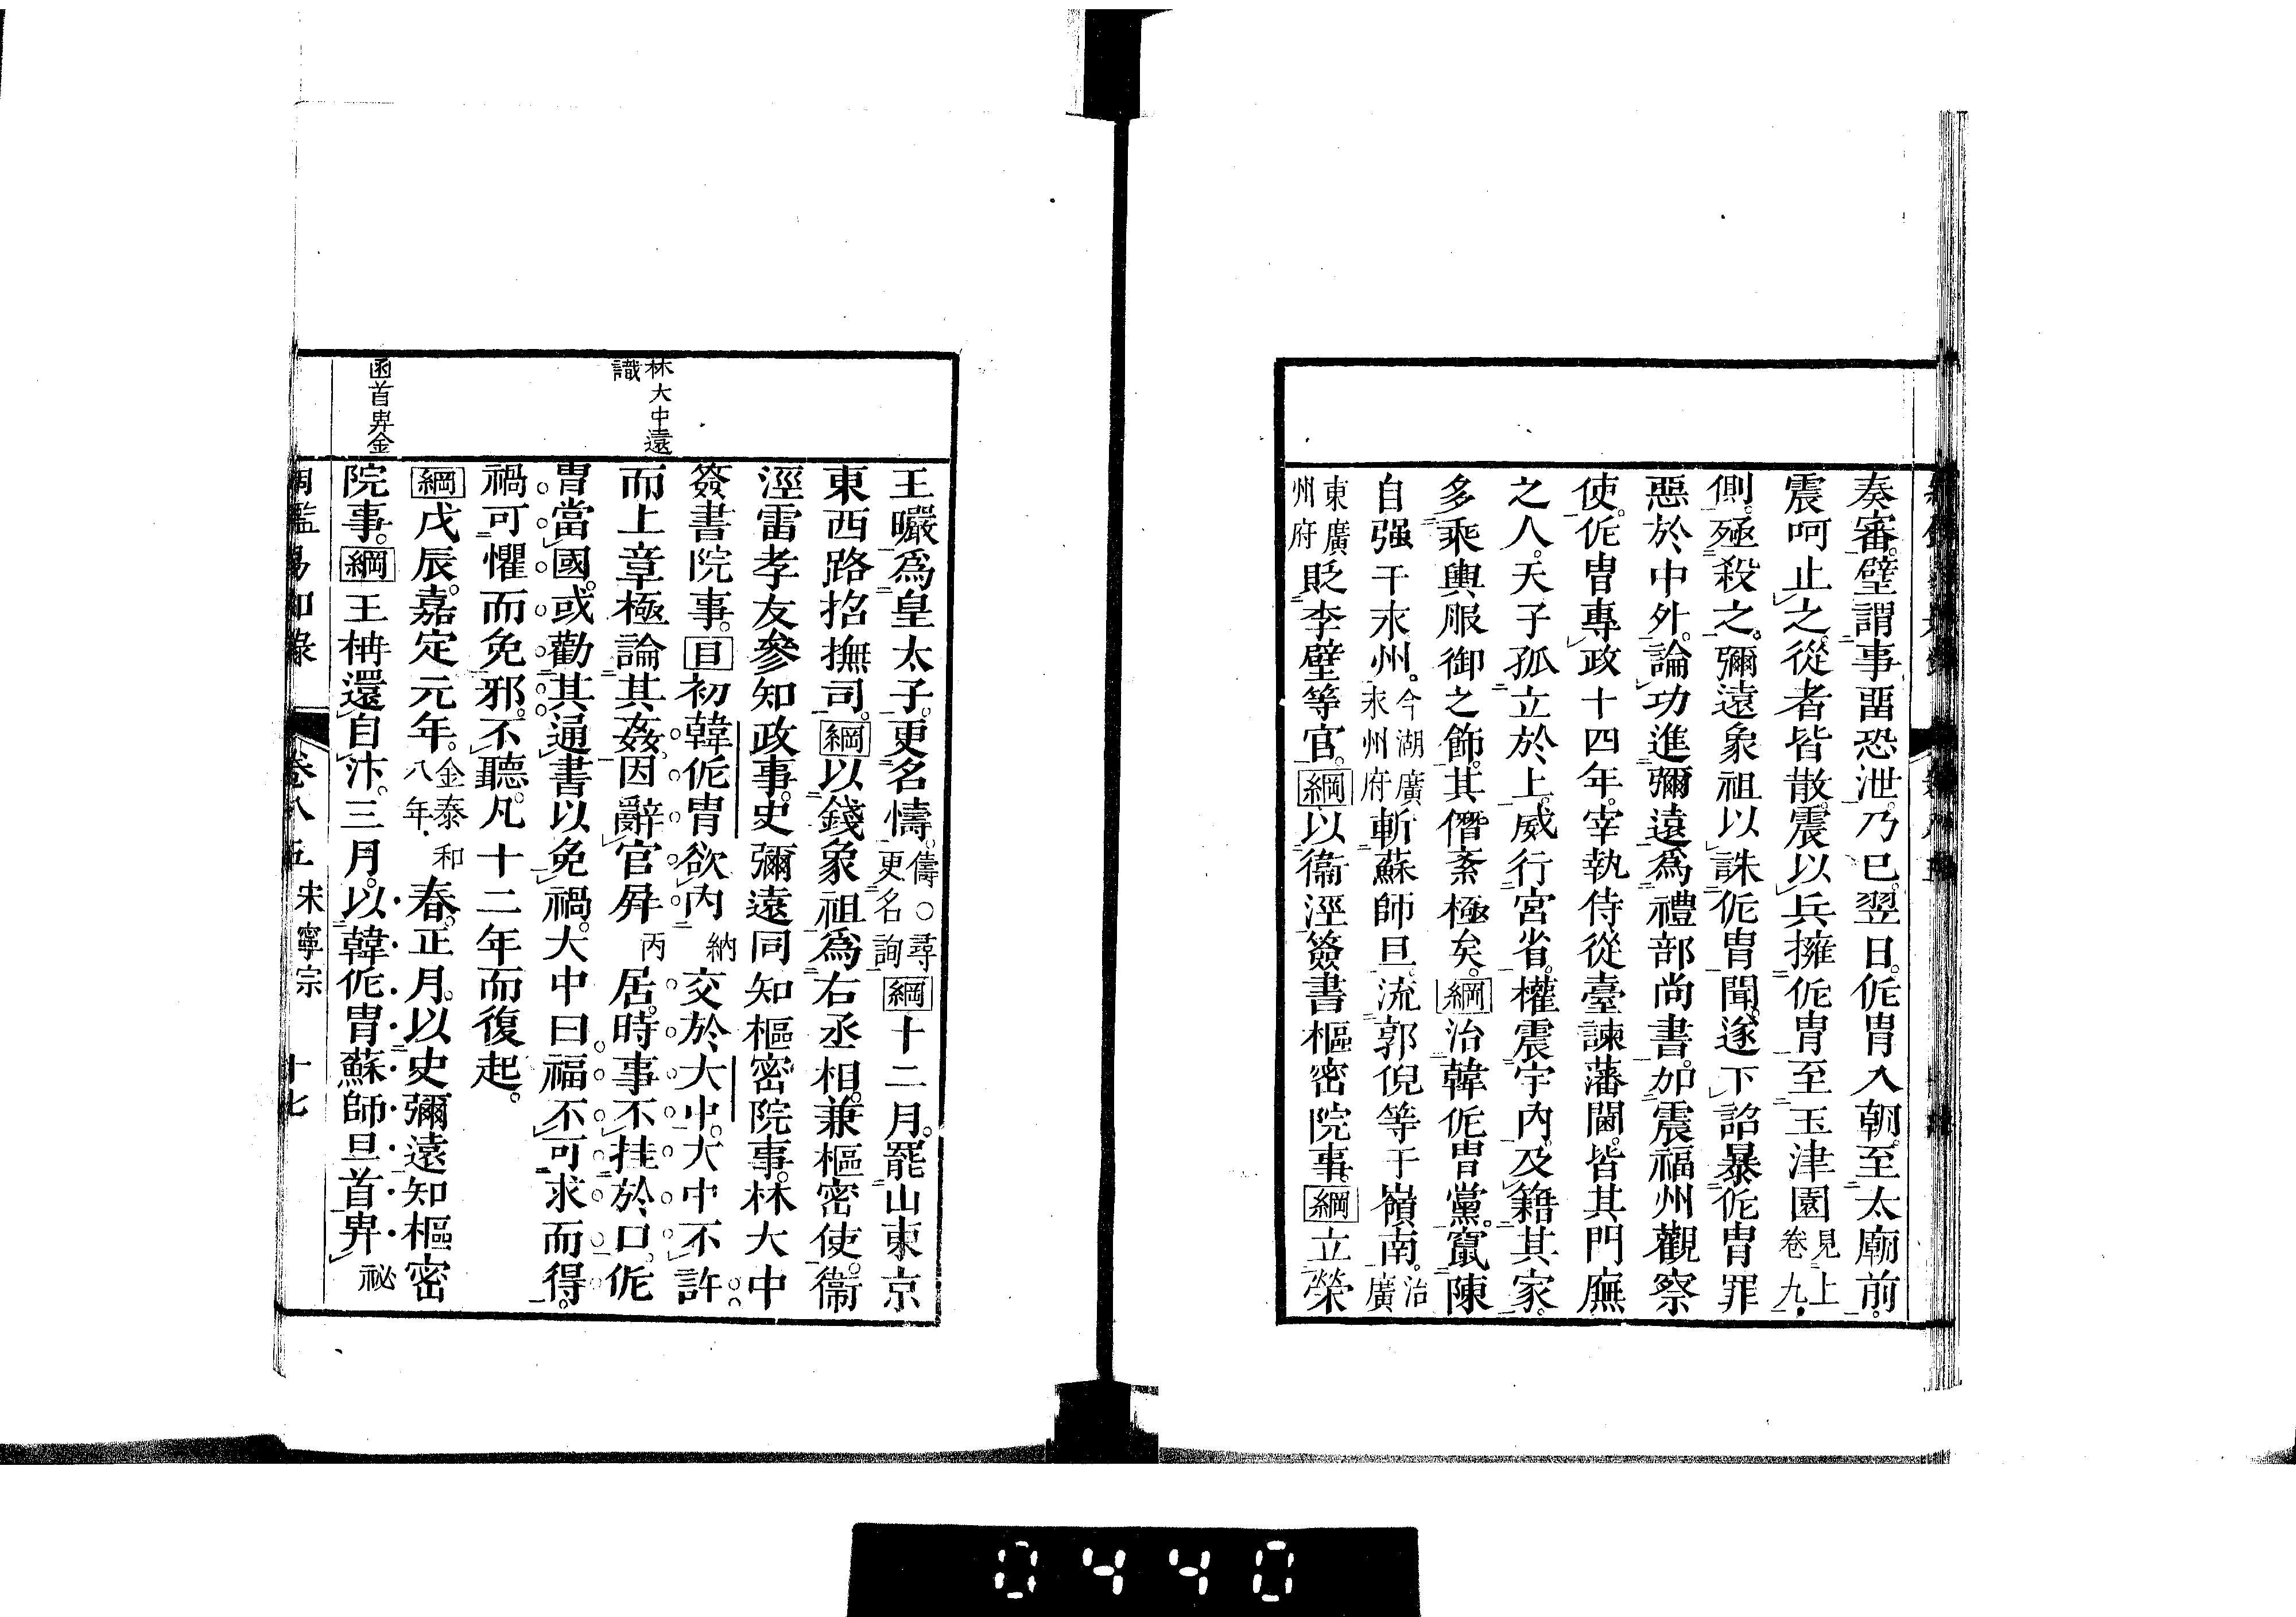 奏審。璧謂事畱恐泄。乃已。翌日。侂冑入朝。至太廟前。
震呵止之。從者皆散。震以兵擁侂冑至玉津園見上卷九。
側。殛殺之。彌遠象祖以誅侂冑聞。遂下詔暴侂冑罪
惡於中外。論功進彌遠爲禮部尚書。加震福州觀察
使。侂冑專政十四年。宰執侍從臺諫藩閫。皆其門廡
之人。天子孤立於上。威行宮省。權震宇內。及籍其家。
多乘輿服御之飾。其僭紊極矣。綱治韓侂冑黨。竄陳
自强于永州。今湖廣永州府斬蘇師旦。流郭倪等于嶺南。治廣
東廣州府貶李壁等官。綱以衞涇簽書樞密院事。綱立榮
林大中遠識
函首畀金
王曮爲皇太子。更名幬。幬○尋更名詢綱十二月。罷山東京
東西路招撫司。綱以錢象祖爲右丞相。兼樞密使。衞
涇雷孝友參知政事。史彌遠同知樞密院事。林大中
簽書院事。目初韓侂冑欲內納交於大中。大中不許
而上章極論其姦。因辭官屛丙居。時事不挂於口。侂
冑當國。或勸其通書以免禍。大中曰福不可求而得。
禍可懼而免邪。不聽。凡十二年而復起。
綱戊辰。嘉定元年。金泰和八年。春。正月。以史彌遠知樞密
院事。綱王柟還自汴。三月。以韓侂冑蘇師旦首畀祕
綱鑑易知錄 卷八五 宋寧宗 十七
0440